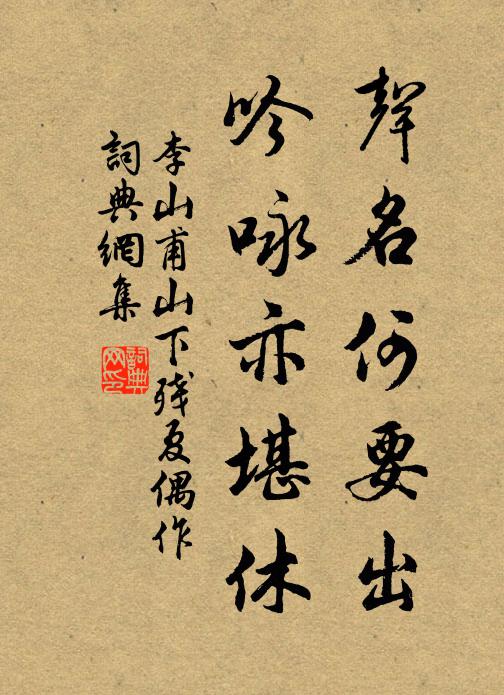 聲名何要出
吟咏亦堪休
李山甫山下残夏偶作
詞典網集
詞典
网印